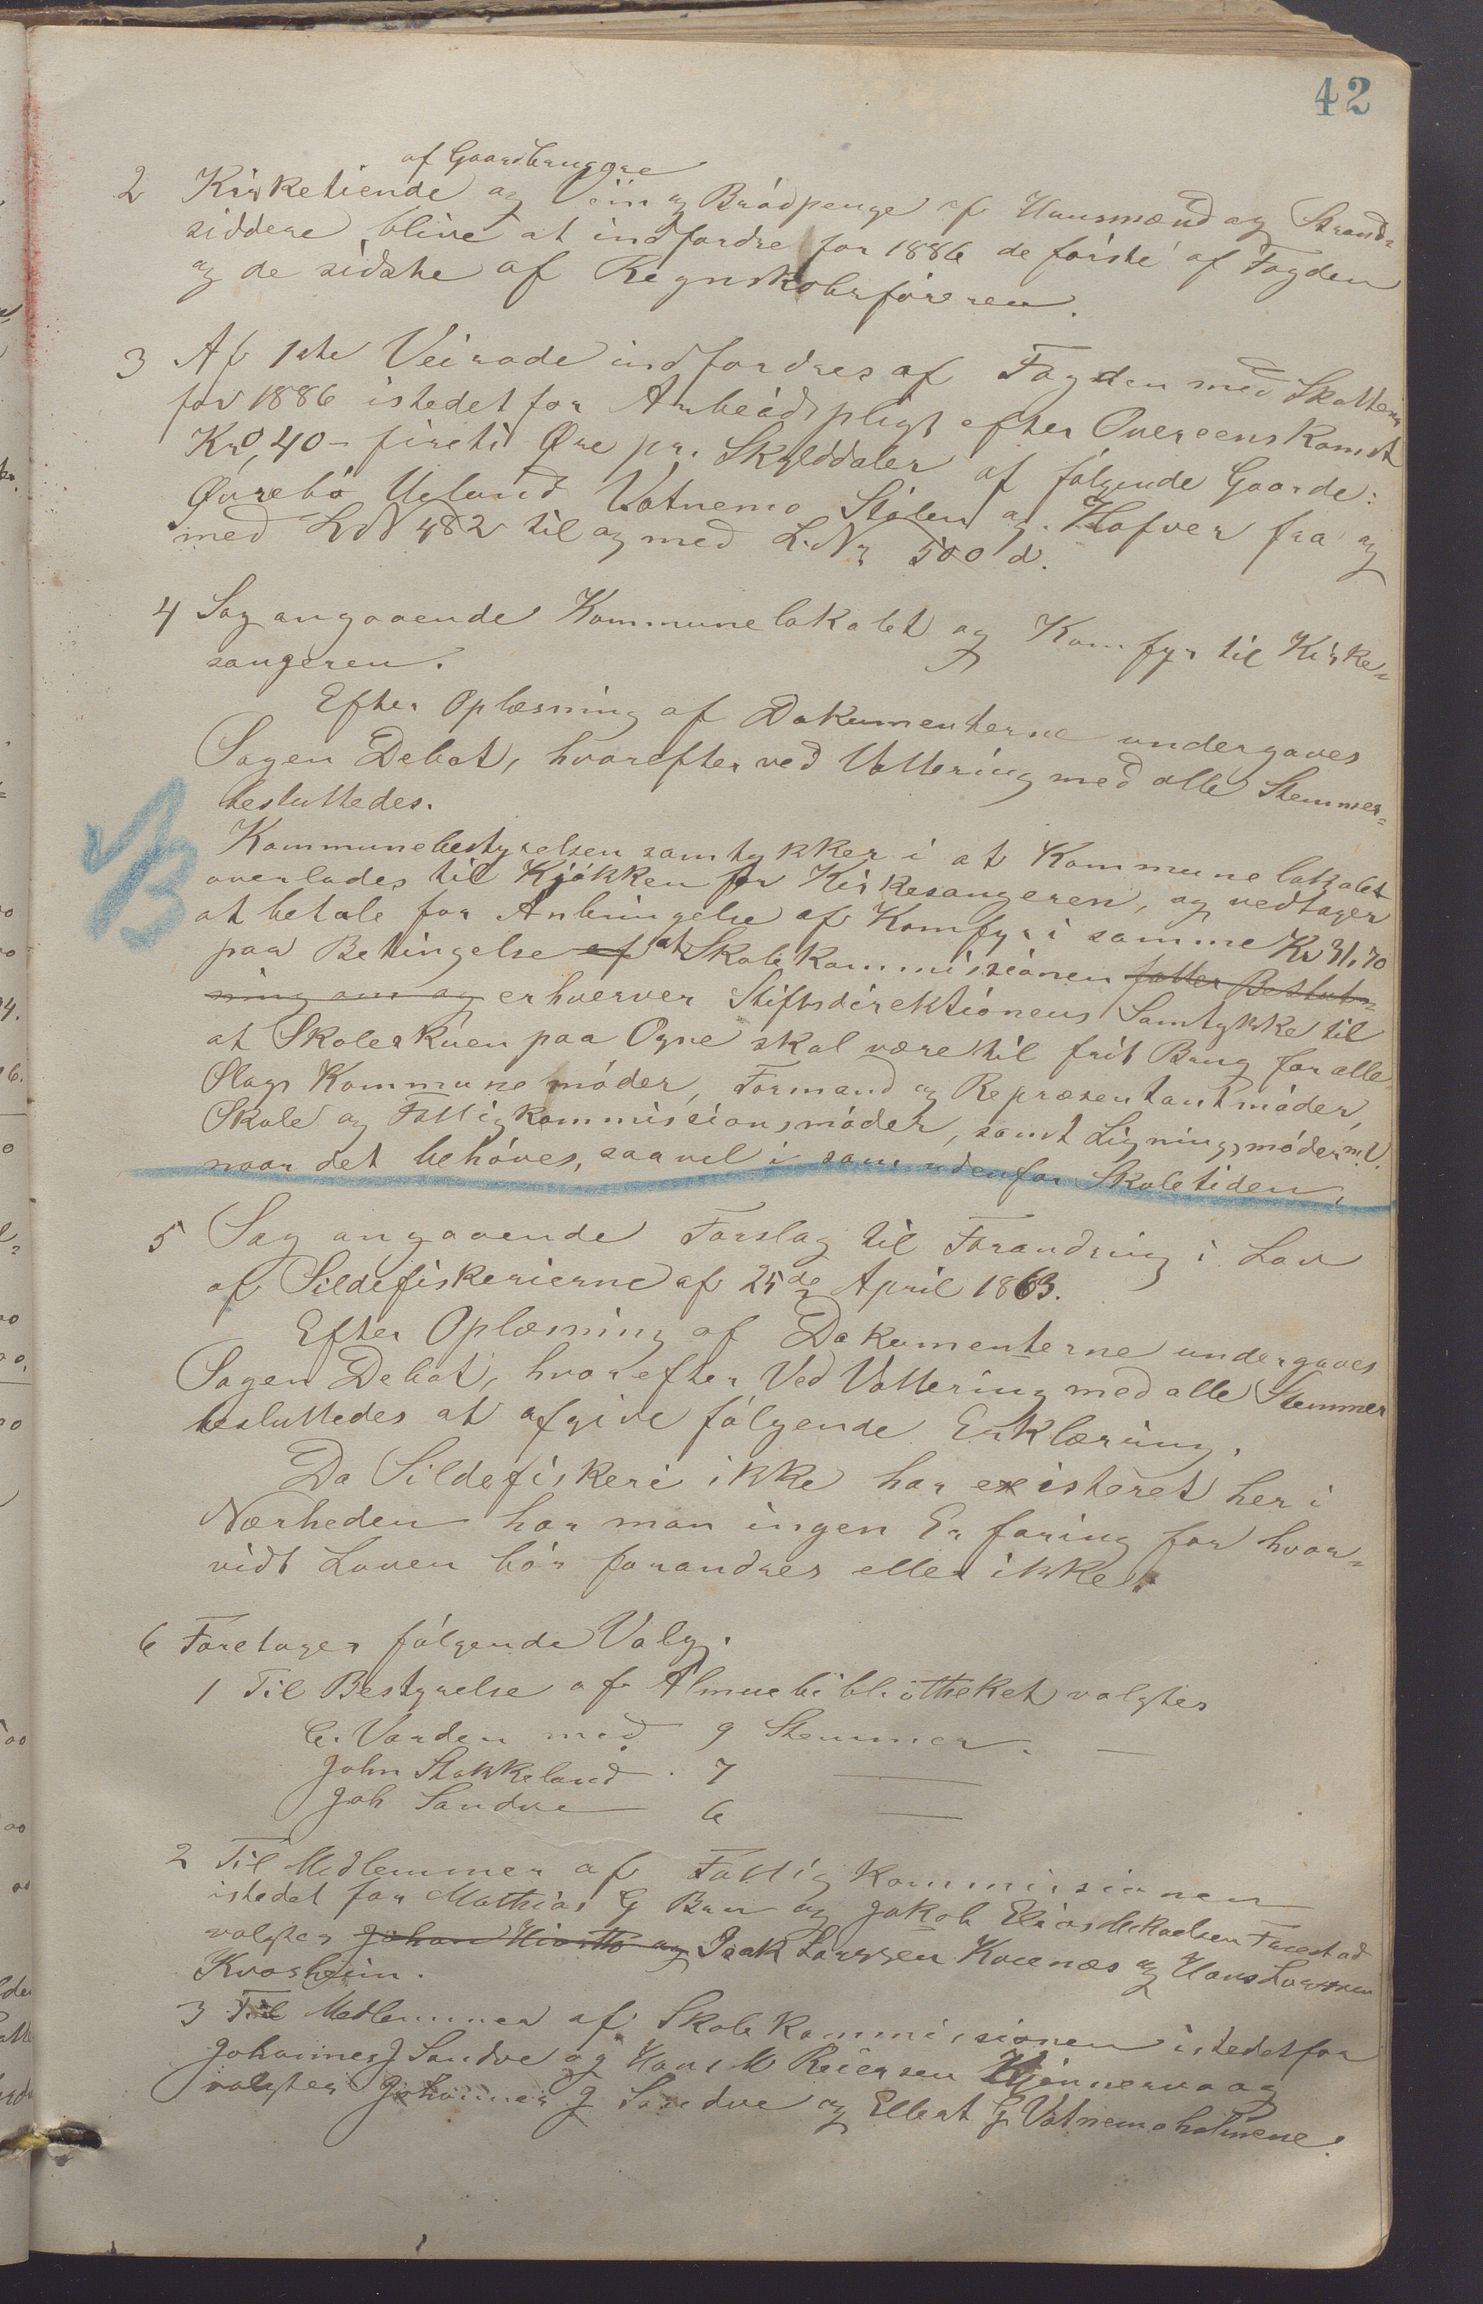 42
af Gaardbrugere
2 Kirketiende og Viin og Brødpenge af Huusmænd og Strand=
siddere, blive at indfordre for 1886 de første af Fogden
og de sidste af Regnskabsføreren.
3 Af 1ste Veirode indfordres af Fogden med Skatten
for 1886 istedetfor Arbeidspligt efter Overeenskomst
Kr 0,40 – fireti Øre pr. Skylddaler af følgende Gaarde:
Øvrebø Ueland Vatnemo Stølen og Hafver fra og
med LN 482 til og med L.Nr 500 d.
4 Sag angaaende Kommunelokalet og Komfyr til Kirke=
sangeren.
Efter Oplæsning af Dokumenterne undergaves
Sagen Debat, hvorefter ved Vottering med alle Stemmer=
besluttedes.
NB
Kommunebestyrelsen samtykker i at Kommunelokalet
overlades til Kjøkken for Kirkesangeren, og vedtager
at betale for Anbringelse af Komfyr i samme Kr 31,70
paa Betingelse af at Skolekommissionen fatter Beslut=
ning om og erhverver Stiftsdirektionens Samtykke til
at Skolestuen paa Ogne skal være til frit Brug for alle
Slags Kommunemøder, Formand og Repræsentantmøder,
Skole og Fattigkommissionsmøder, samt Ligningsmøder m.V.
naar det behøves, saavel i som udenfor Skoletiden.
5 Sag angaaende Forslag til Forandring i Lov
af Sildefiskerierne af 25de April 1863.
Efter Oplæsning af Dokumenterne undergaves
Sagen Debat, hvorefter Ved Vottering med alle Stemmer
besluttedes at afgive følgende Erklæring.
Da Sildefiskeri ikke har existeret her i
Nærheden har man ingen Erfaring for hvor=
vidt Loven bør forandres eller ikke.
6 Foretages følgende Valg.
1 Til Bestyrelse af Almuebibliotheket valgtes
C. Varden med 9 Stemmer. —
John Stokkeland . 7 —
Joh Sandve 6 —
2 Til Medlemmer af Fattigkommissionen
istedet for Mathias G Bru og Jakob Elias Mikaelsen Fuestad
valgtes Johan Hiorth og Isak Larssen Kvenæs og Hans Larssen
Kvasheim.
3 Til Medlemmer af Skolekommissionen istedetfor
Johannes J Sandve og Hans M Reiersen og
valgtes Johannes J Sandve og Ellert G Vatnemo